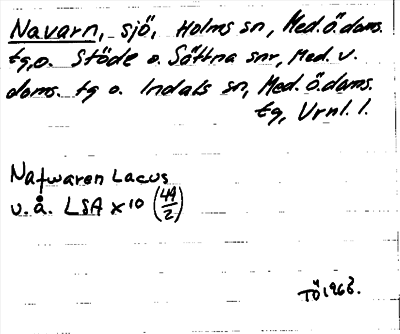 Navarn, sjö, Holms sn, Med.ö.doms.
tg, o. Stöde o. Sättna snr, Med. v.
doms. tg o. Indals sn, Med.ö.doms.
tg, Vrnl. l.
Nafwaren Lacus
u. å. LSA X 10 (44/2)
TÖ 1968.